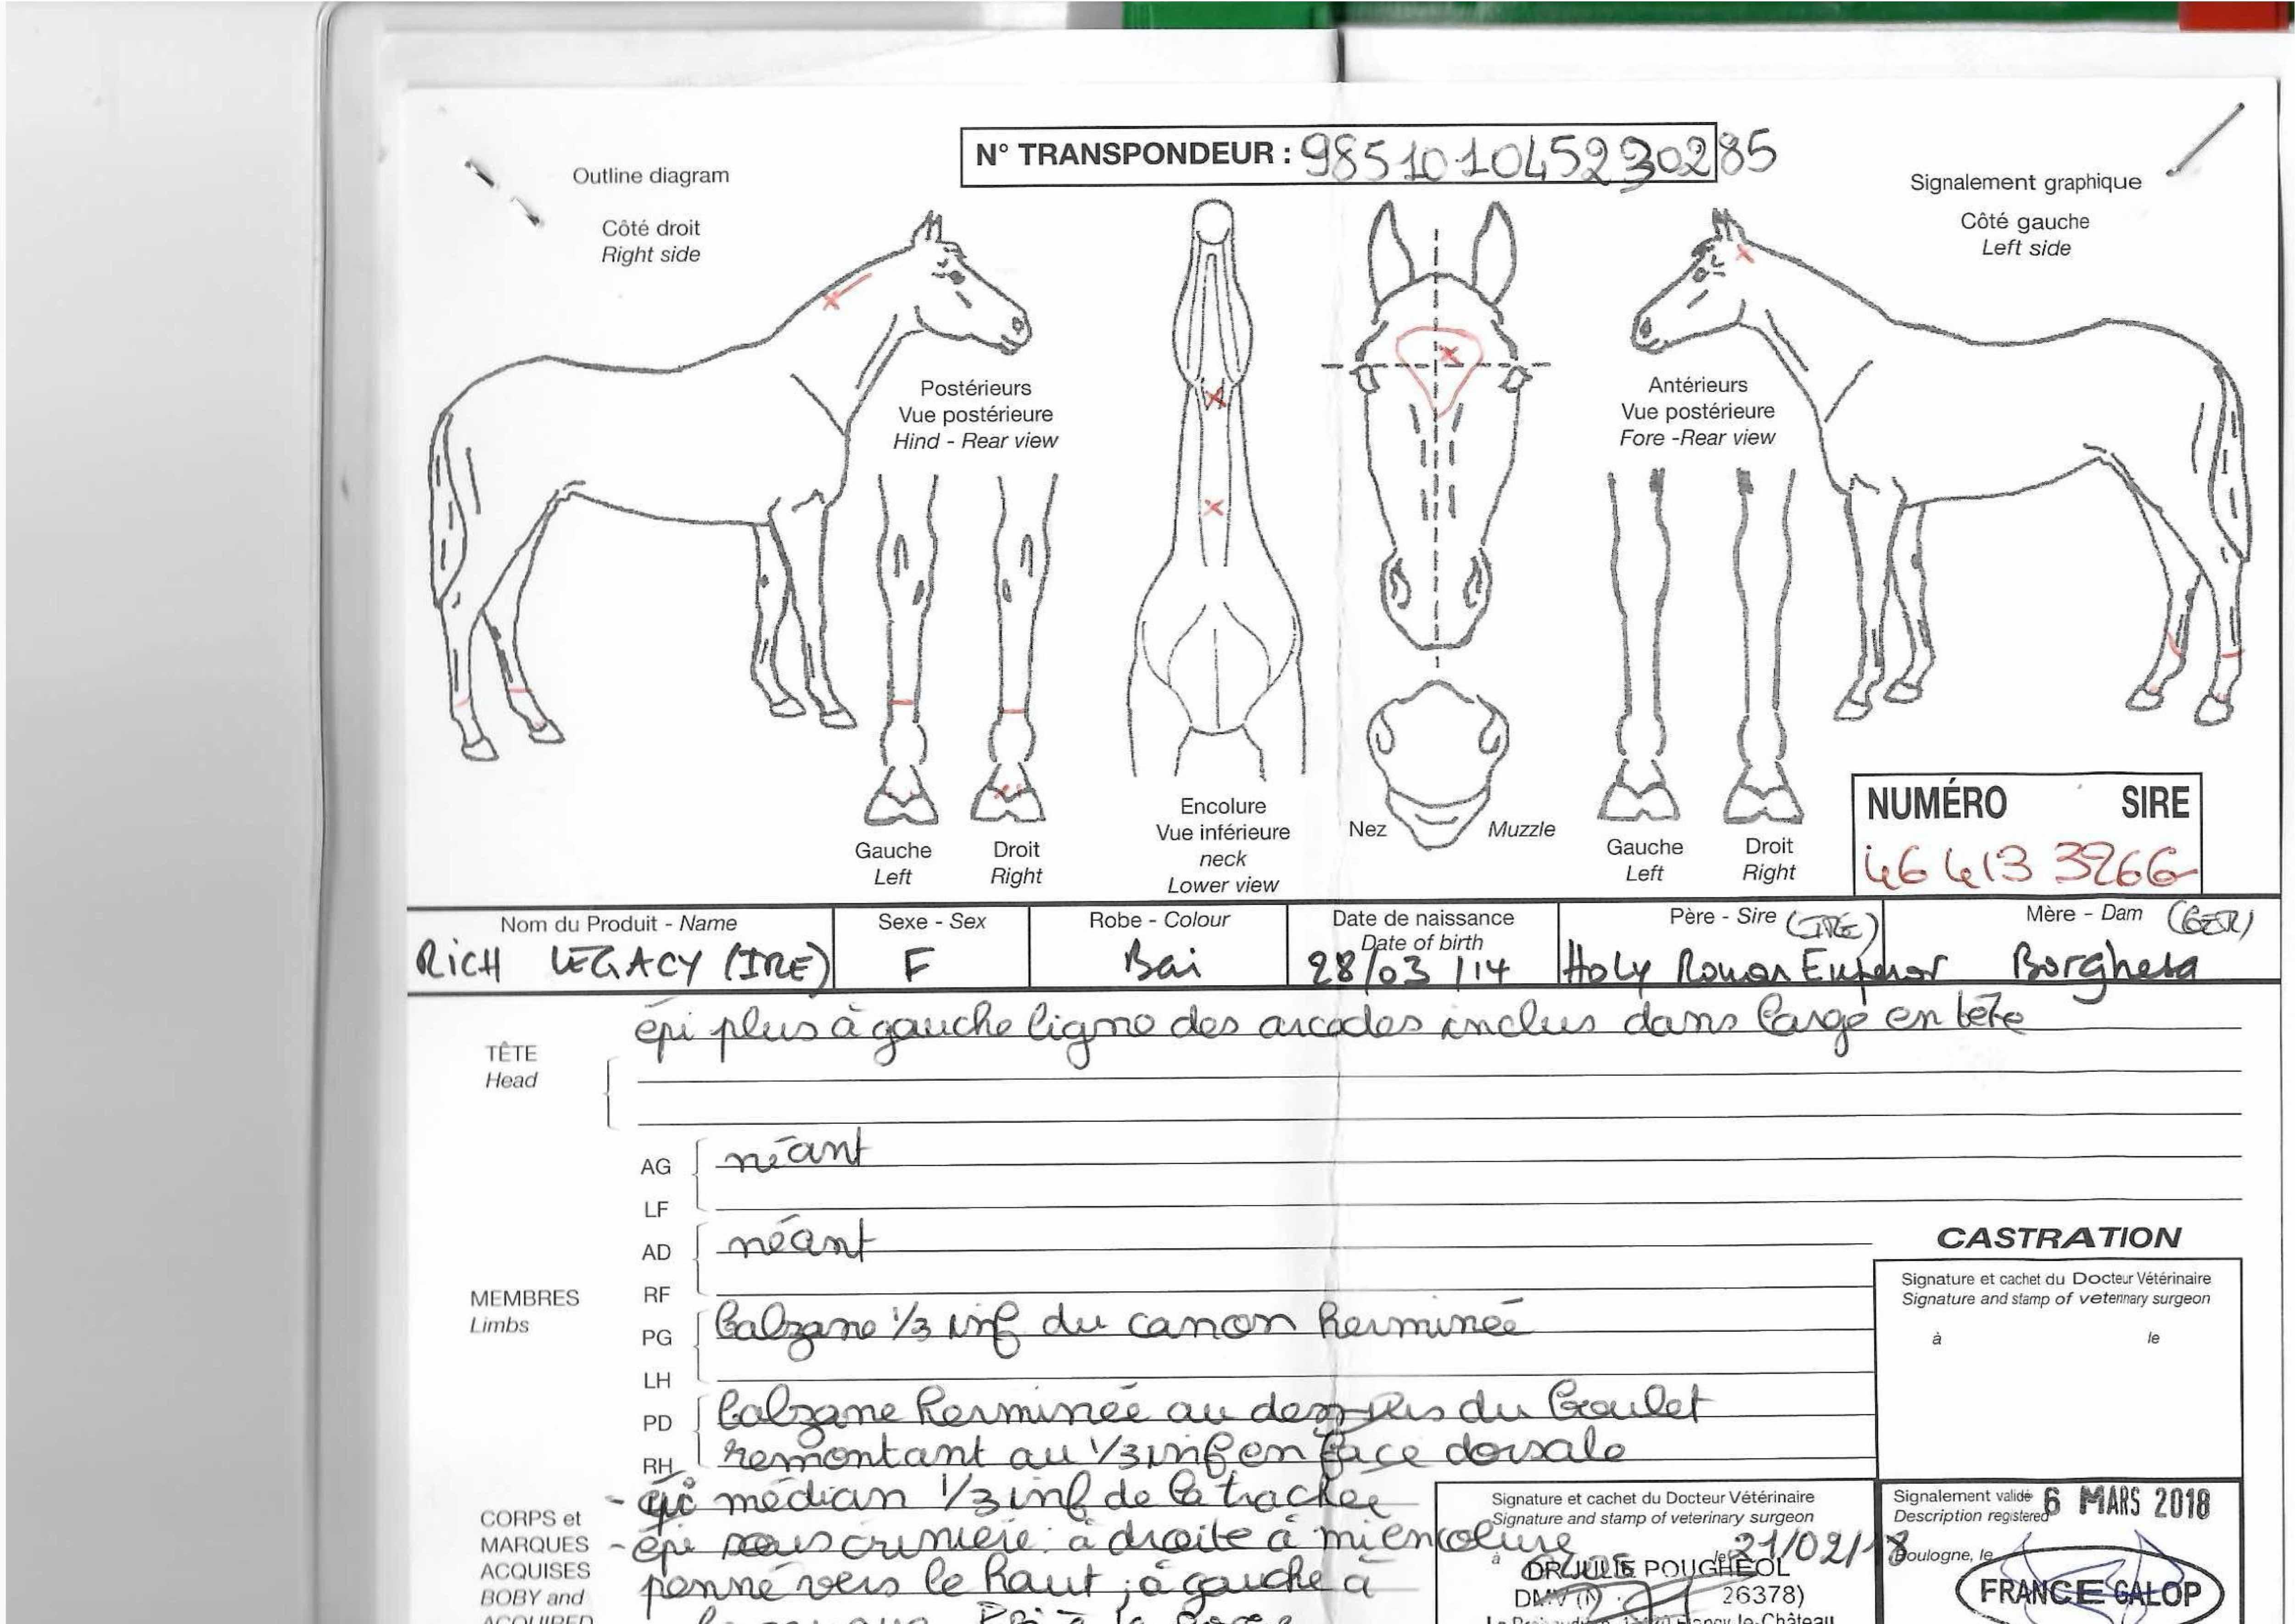 N° TRANSPONDEUR : 985101045230285
Outline diagram
Signalement graphique
Côté droit
Right side
Côté gauche
Left side
Postérieurs
Vue postérieure
Hind - Rear view
Antérieurs
Vue postérieure
Fore -Rear view
Encolure
Vue inférieure
neck
Lower view
Nez
Muzzle
Gauche
Left
Droit
Right
Gauche
Left
Droit
Right
NUMÉRO SIRE
46 413 326G
Nom du Produit - Name
RICH LEGACY (IRE)
Sexe - Sex
F
Robe - Colour
Bai
Date de naissance
Date of birth
28/03/14
Père - Sire (IRE)
Holy Roman Emperor
Mère - Dam (GER)
Borghesa
TÊTE
Head
épi plus à gauche ligne des arcades inclus dans large en tête
AG
LF
néant
AD
RF
néant
MEMBRES
Limbs
PG
LH
balzane 1/3 inf du canon herminée
PD
RH
balzane herminée au dessus du boulet
remontant au 1/3 inf en face dorsale
CORPS et
MARQUES
ACQUISES
BOBY and
ACQUIRED
- épi médian 1/3 inf de la trachée
- épi sous crinière : à droite à mi encolure
penné vers le haut ; à gauche à
CASTRATION
Signature et cachet du Docteur Vétérinaire
Signature and stamp of veterinary surgeon
à le
Signature et cachet du Docteur Vétérinaire
Signature and stamp of veterinary surgeon
à le 21/02/18
DR JULIE POUGHEOL
26378)
Signalement validé
Description registered
6 MARS 2018
Boulogne, le
FRANCE GALOP